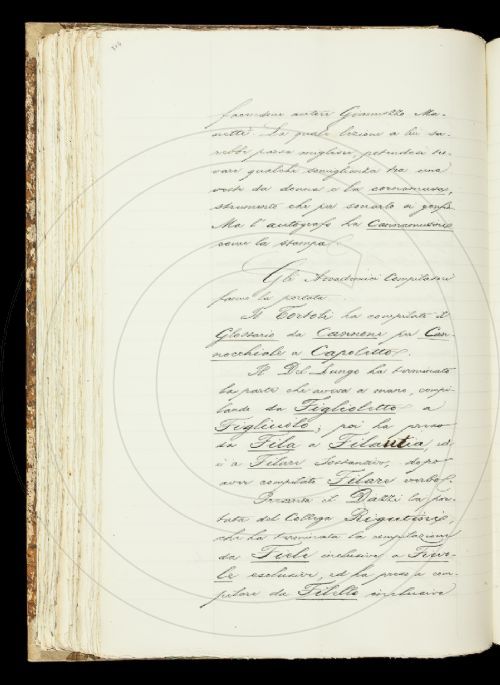 facendone autore Giannozzo Ma-
netti. La quale lezione a lui sa-
rebbe parsa migliore, potendosi tro-
vare qualche somiglianza tra una
veste da donna e la cornamusa,
strumento che per sonarlo si gonfia.
Ma l'autografo ha Cannamusino
come la stampa.
Gli Accademici Compilatori
fanno la portata.
Il Tortoli ha compilato il
Glossario da Cannone per Can-
nocchiale a Capoletto.
Il Del Lungo ha terminato
la parte che aveva a mano, compi-
lando da Figlioletto a
Figliuolo; poi ha preso
da Fila a Filautia, ed
è a Filare Sostantivo, dopo
aver compilato Filare verbo.
Presenta il Dazzi la por-
tata del Collega Rigutini,
che ha terminata la compilazione
da Fiele inclusive a Fievo-
le esclusive, ed ha preso a com-
pilare da Filello inclusive